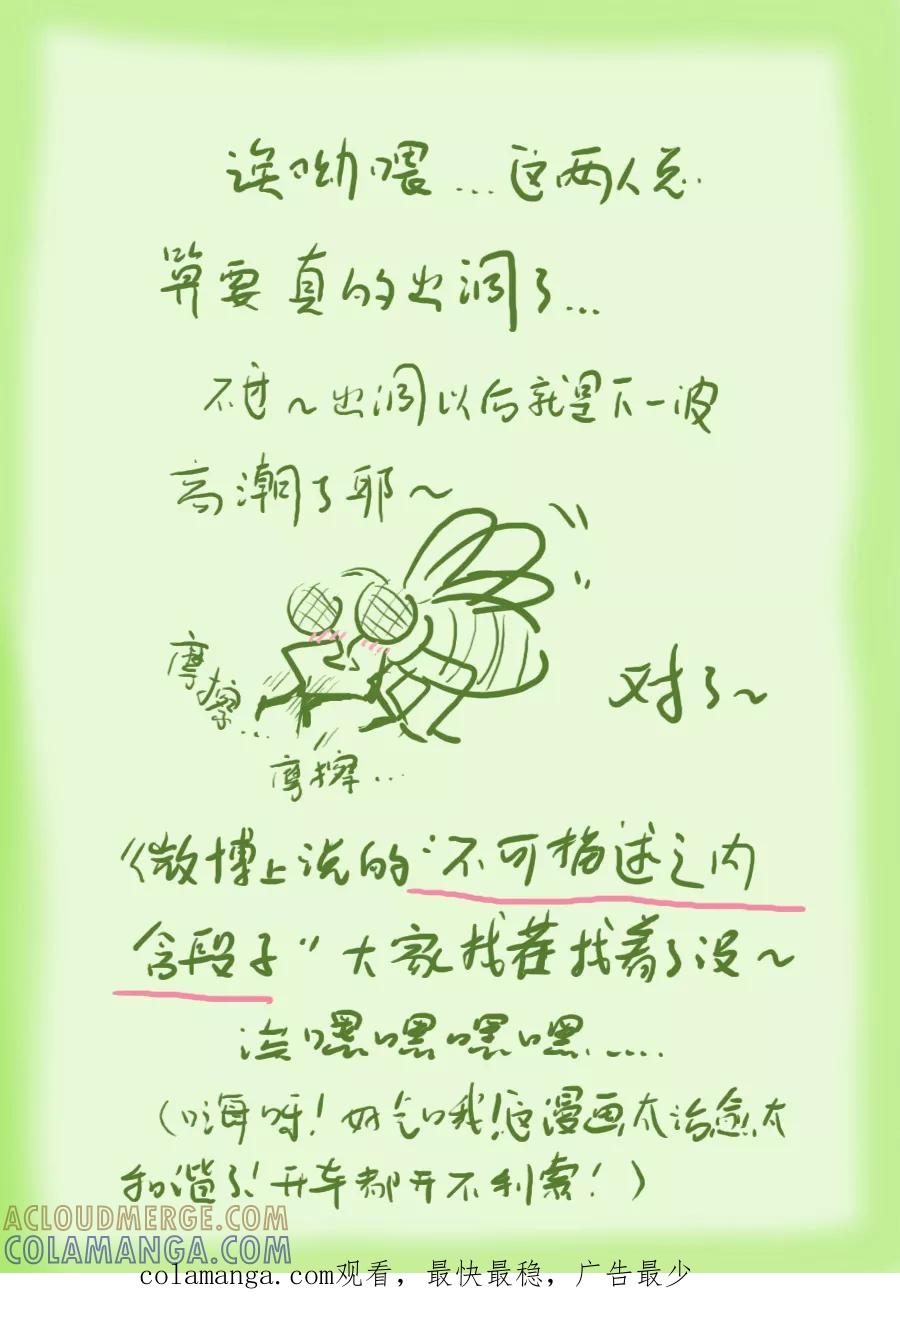 诶呦喂...这两人总
算要真的出洞了...
不过～出洞以后就是下一波
高潮了耶～
摩擦...
摩擦...
对了～
《微博上说的"不可描述之内
含段子"大家找茬找着了没～
嘿嘿嘿嘿.....
(嗨呀！好气哦！这漫画太治愈太
和谐了！开车都开不利索！)
ACLOUDMERGE.COM
COLAMANGA.COM
colamanga.com观看，最快最稳，广告最少